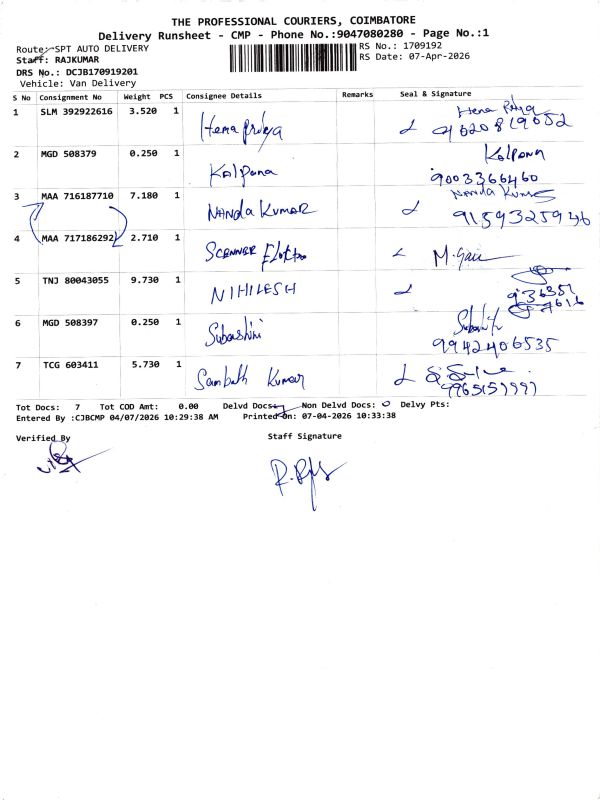 THE PROFESSIONAL COURIERS, COIMBATORE
Delivery Runsheet - CMP - Phone No.:9047080280 - Page No.:1
Route: SPT AUTO DELIVERY
RS No.: 1709192
Staff: RAJKUMAR
RS Date: 07-Apr-2026
DRS No.: DCJB170919201
Vehicle: Van Delivery
S No Consignment No Weight PCS Consignee Details Remarks Seal & Signature
1 SLM 392922616 3.520 1 Hema Priya Hema Priya
2 MGD 508379 0.250 1 Kalpana Kalpana
9003366460
3 MAA 716187710 7.180 1 NANDA KUMAR NANDA KUMAR
9159325946
4 MAA 717186292 2.710 1
5 TNJ 80043055 9.730 1 NIHILESH
6 MGD 508397 0.250 1 Subashini
9942406535
7 TCG 603411 5.730 1 Sambath Kumar
Tot Docs: 7 Tot COD Amt: 0.00 Delvd Docs: 7 Non Delvd Docs: 0 Delvy Pts:
Entered By :CJBCMP 04/07/2026 10:29:38 AM Printed On: 07-04-2026 10:33:38
Verified By
Staff Signature